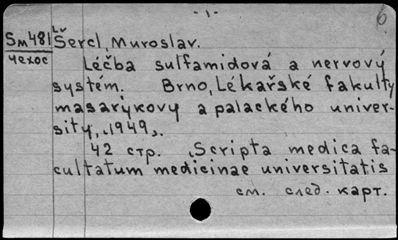 - 1 -
6
Sм481 Šercl, Muroslav.
чехос
Léčba sulfamidová a nervový
systém. Brno, Lékařské fakulty
masarykovy a palackého univer-
sity, „1949„.
42 стр. „Scripta medica fa-
cultatum medicinae universitatis
см. след. карт.